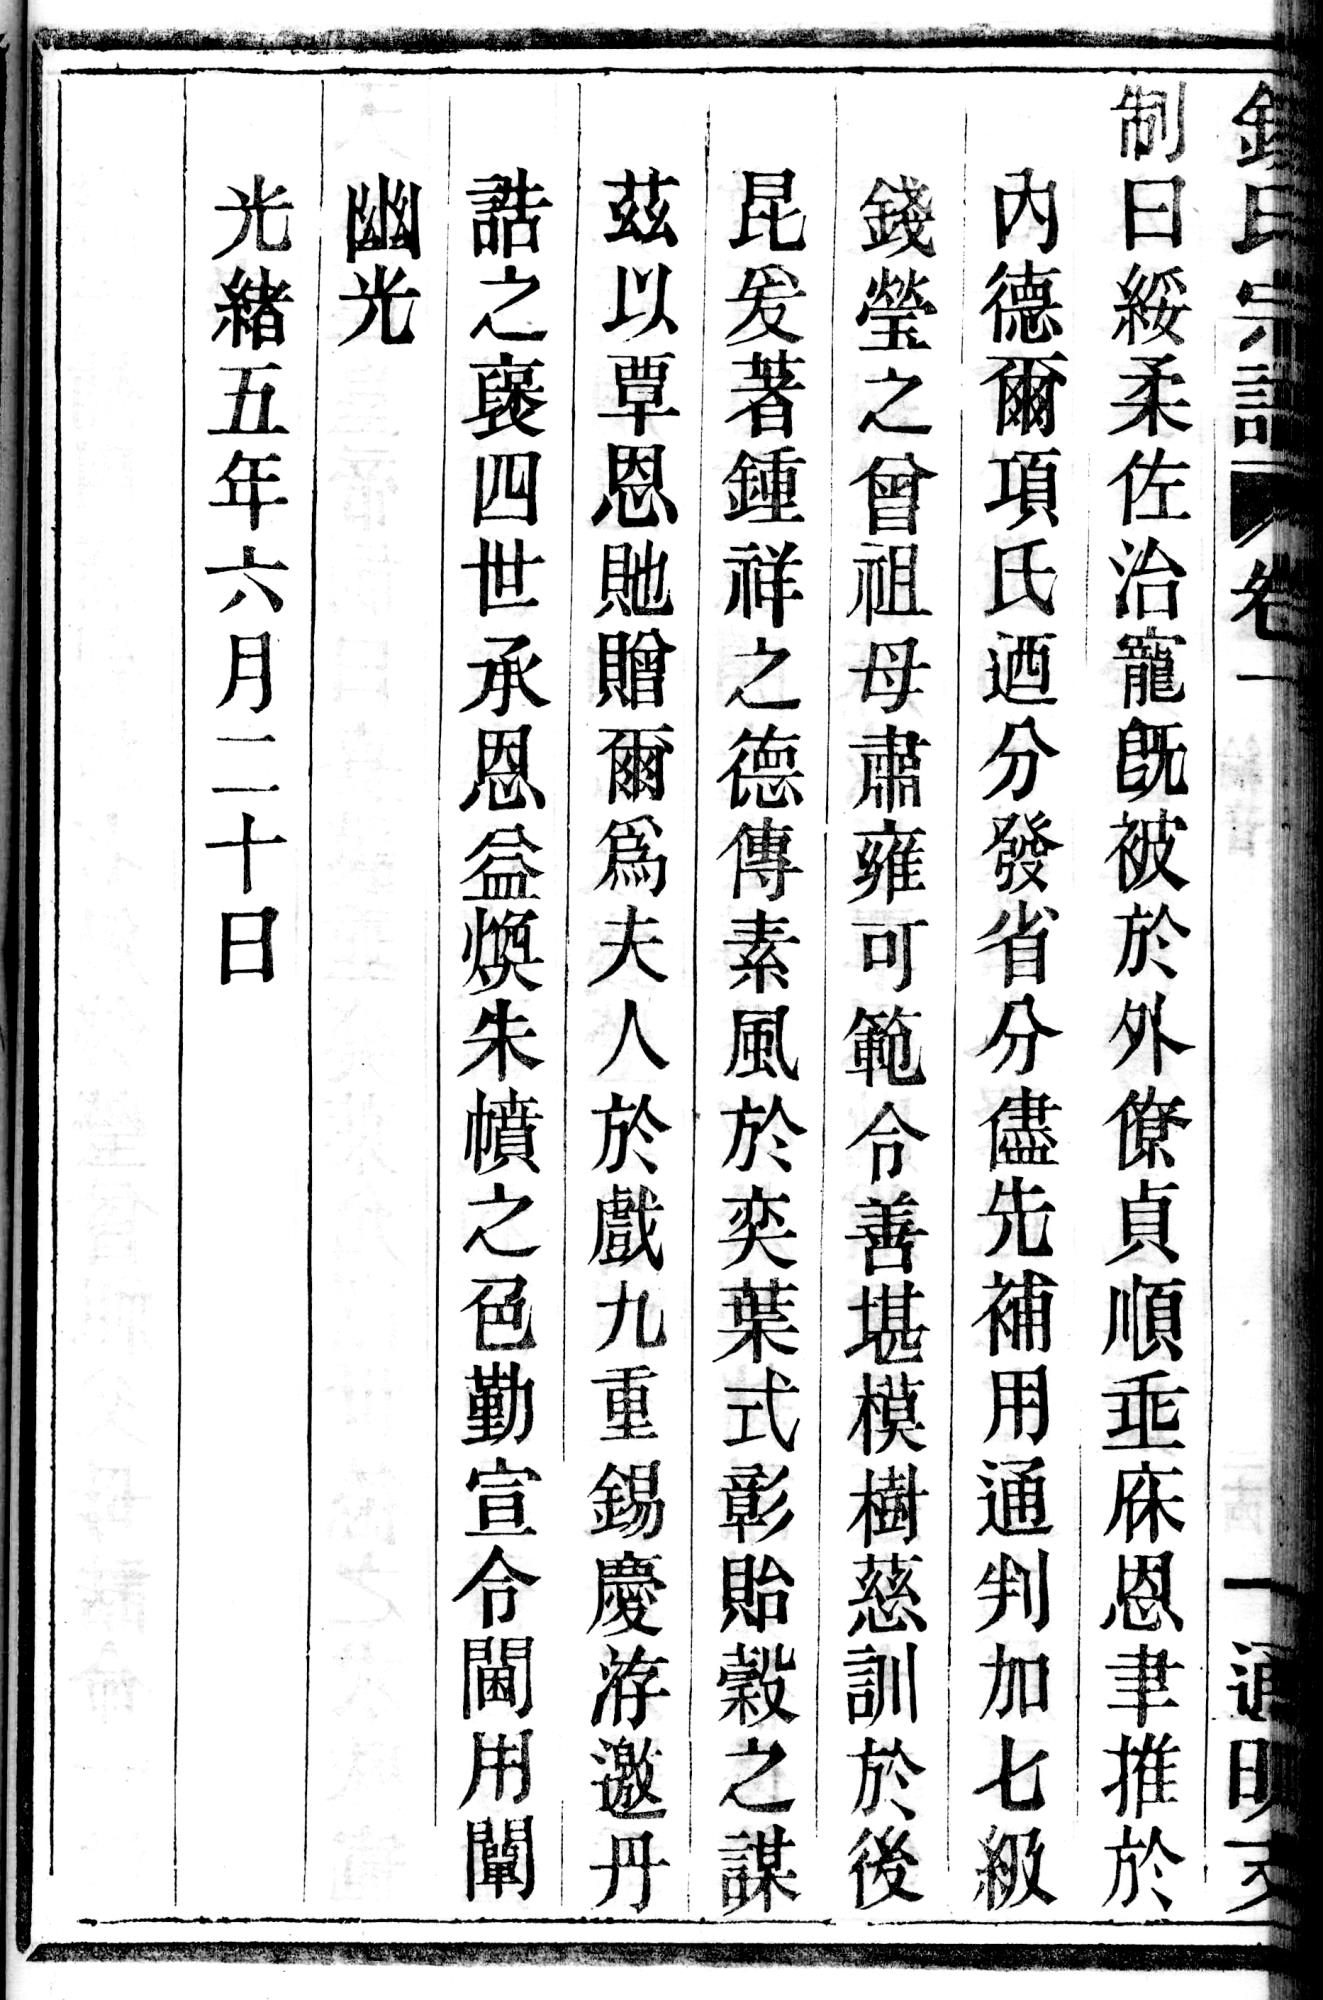 錢氏宗譜 卷一 一 通
制曰綏柔佐治寵旣被於外僚貞順垂庥恩聿推於
內德爾項氏迺分發省分儘先補用通判加七級
錢瑩之曾祖母肅雍可範令善堪模樹慈訓於後
昆爰著鍾祥之德傳素風於奕葉式彰貽穀之謀
茲以覃恩貤贈爾爲夫人於戲九重錫慶洊邀丹
誥之襃四世承恩益煥朱幩之色勤宣令閫用闡
幽光
光緒五年六月二十日